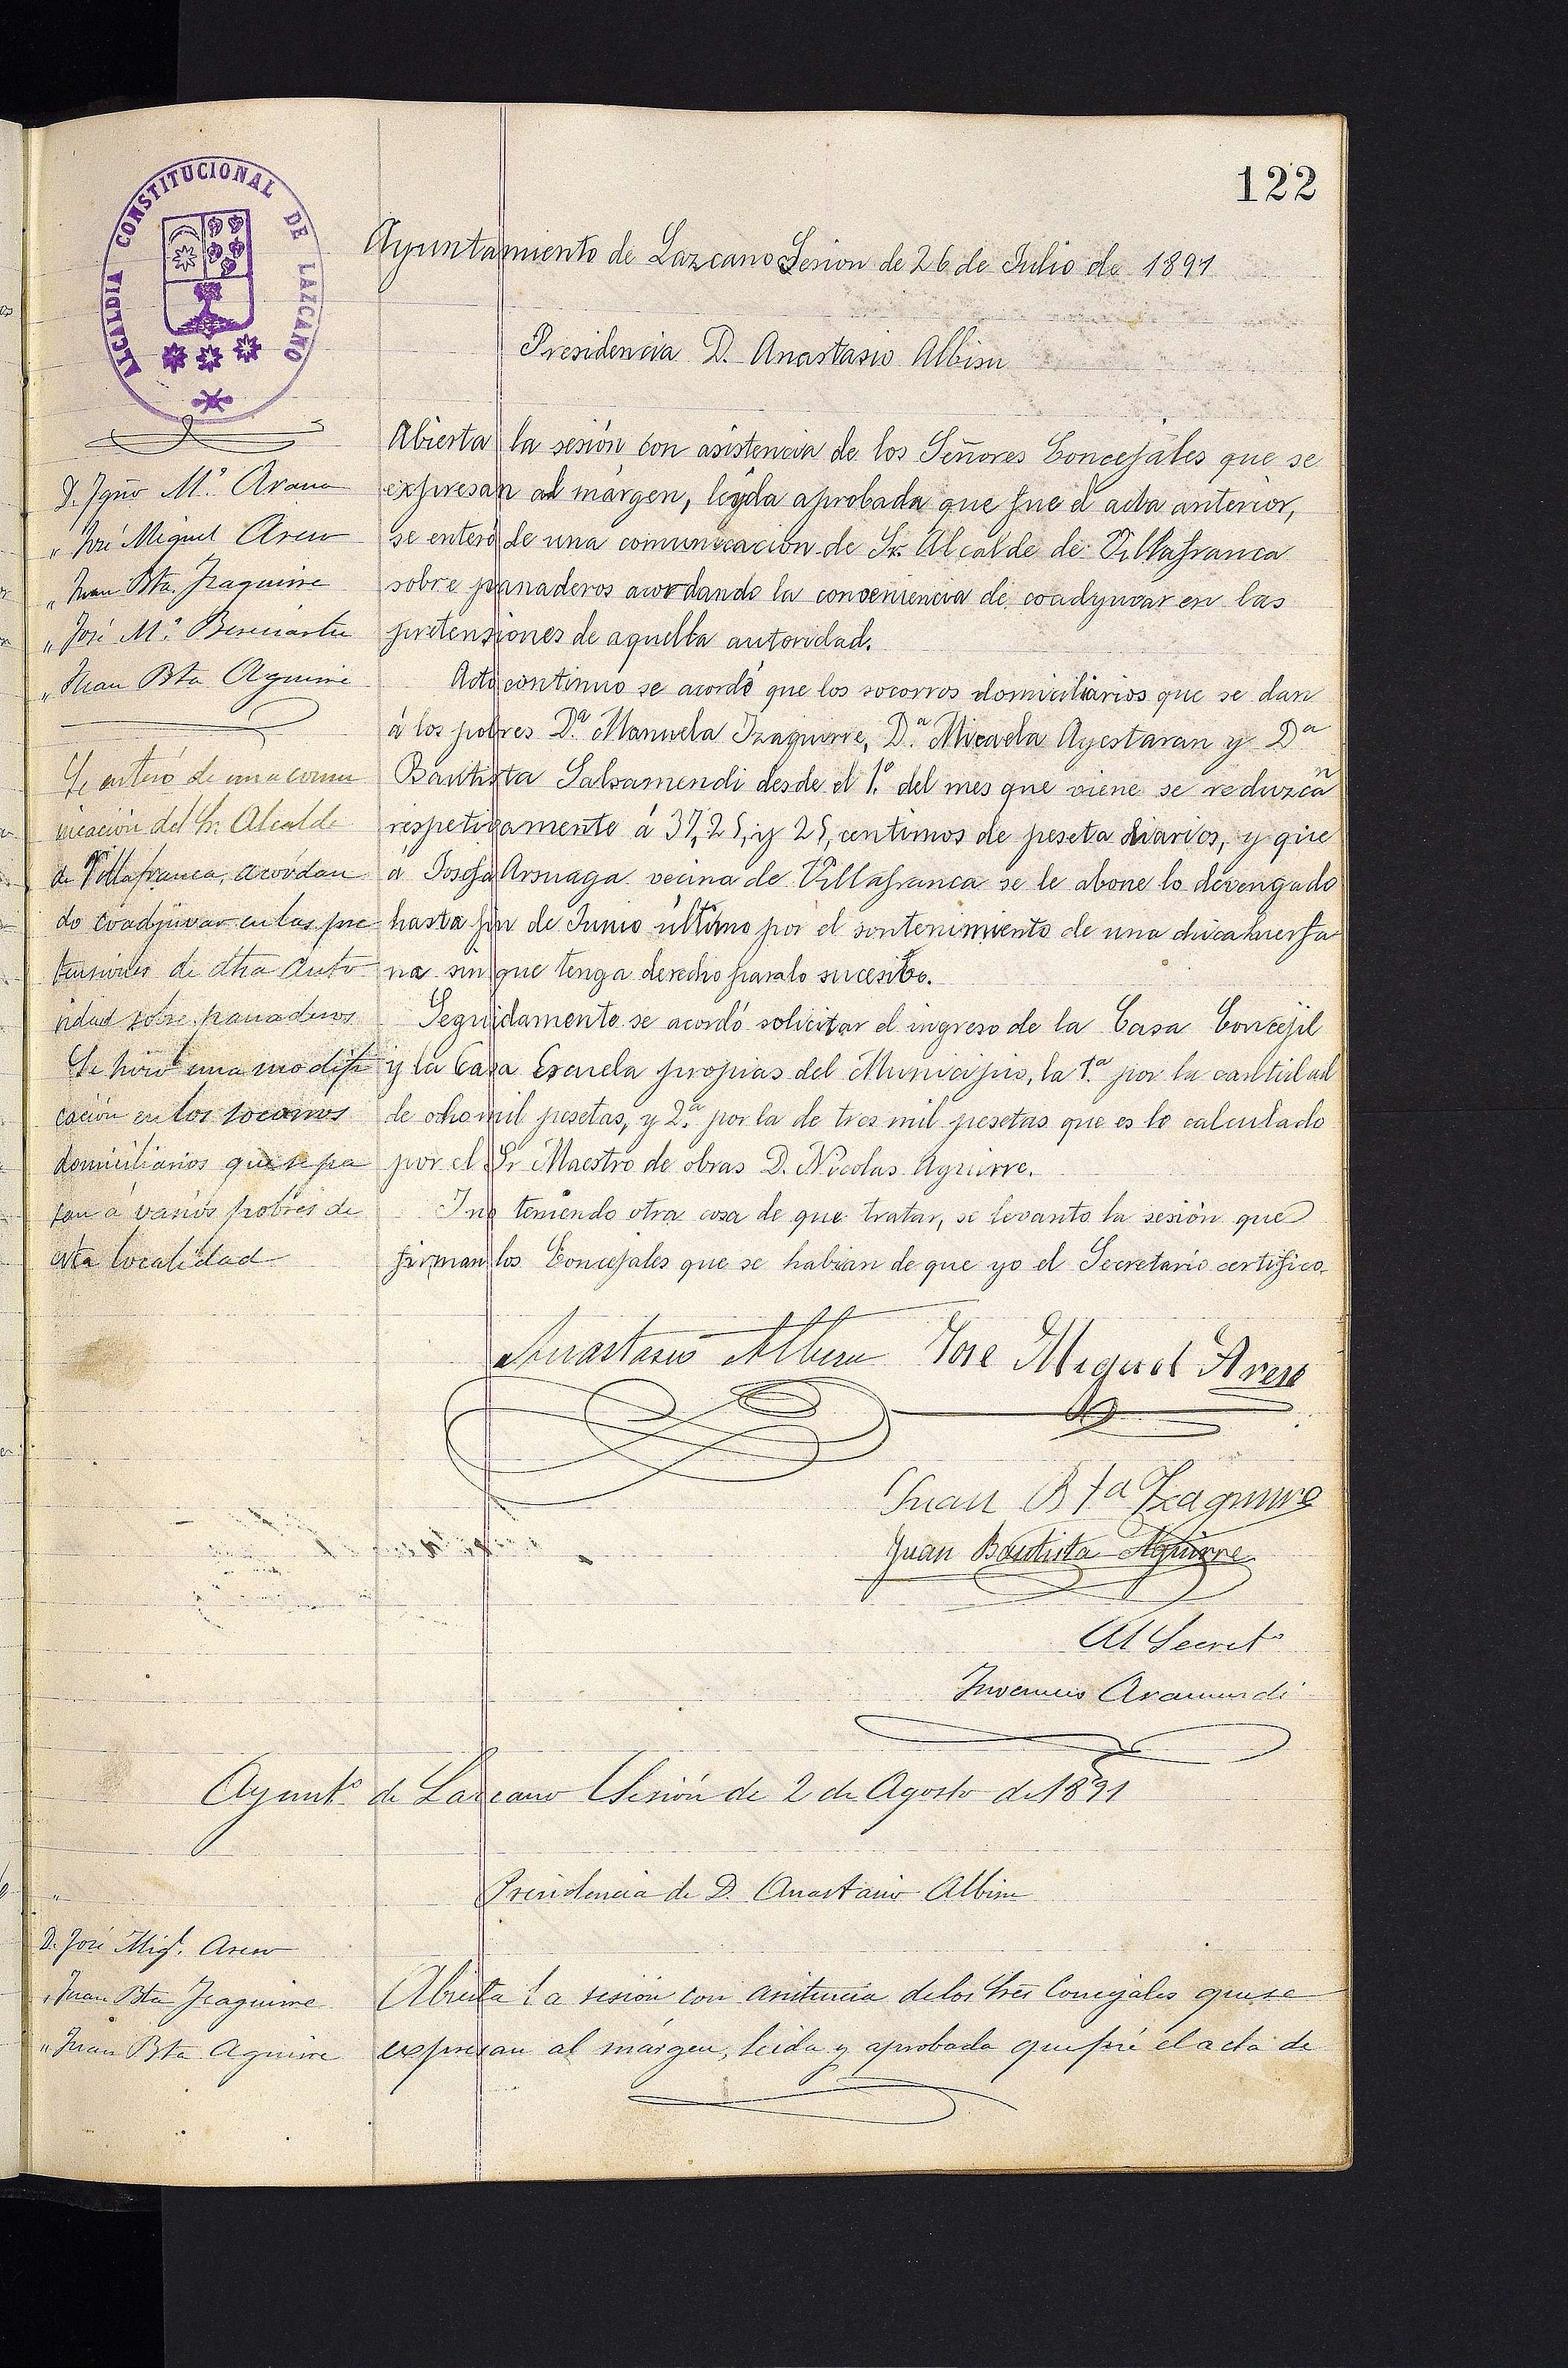 122
ALCALDIA CONSTITUCIONAL DE LAZCANO
Ayuntamiento de Lazcano Sesion de 26 de Julio de 1891
Presidencia D. Anastasio Albisu
D. Ygño M.ª Arana
" José Miguel Areso
" Juan Bta. Izaguirre
" José M.ª Bereciartu
" Juan Bta Aguirre
Se enteró de una comu
nicación del Sr. Alcalde
de Villafranca, acordan
do coadyuvar en las pre
tensiones de dha Auto
ridad sobre panaderos
Se hizo una modifi
cación en los socorros
domiciliarios que se pa
san á varios pobres de
esta localidad
Abierta la sesión con asistencia de los Señores Concejales que se
expresan al márgen, leyda aprobada que fue el acta anterior,
se enteró de una comunicacion de Sr. Alcalde de Villafranca
sobre panaderos acordando la conveniencia de coadyuvar en las
pretensiones de aquella autoridad.
Acto continuo se acordó que los socorros domiciliarios que se dan
á los pobres Dª. Manuela Izaguirre, D.ª Micaela Ayestaran y Dª
Bautista Salsamendi desde el 1.º del mes que viene se reduzcan
respetivamente á 37, 25, y 25, centimos de peseta diarios, y que
á Josefa Arsuaga vecina de Villafranca se le abone lo devengado
hasta fin de Junio último por el sontenimiento de una chica huerfa
na sin que tenga derecho para lo sucesibo.
Seguidamente se acordó solicitar el ingreso de la Casa Concejil
y la Casa Escuela propias del Municipio, la 1.ª por la cantidad
de ocho mil pesetas, y 2.ª por la de tres mil pesetas que es lo calculado
por el Sr Maestro de obras D. Nicolas Aguirre.
I no teniendo otra cosa de que tratar, se levanto la sesión que
firman los Concejales que se habian de que yo el Secretario certifico.
Anastasio Albisu José Miguel Areso
Juan Bta Izaguirre
Juan Bautista Aguirre
El Secret.º
Aramendi
Ayunt.º de Lazcano Sesión de 2 de Agosto de 1891
Presidencia de D. Anastasio Albisu
D. José Migl. Areso
" Juan Bta Izaguirre
" Juan Bta Aguirre
Abierta la sesión con asistencia de los Sres Concejales que se
expresan al márgen, leida y aprobada que fué el acta de